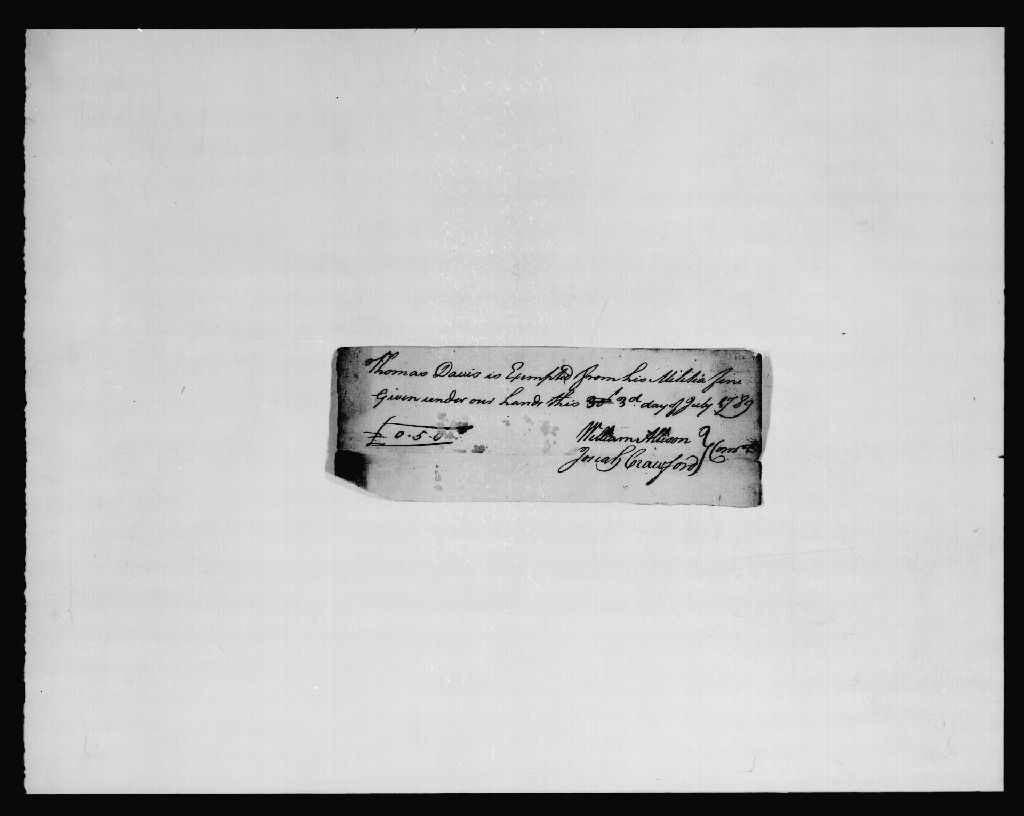 Thomas Davis is Exempted from his Militia fine
Given under our hands this 3d day of July 1789
£ 0.5.0
William Allison
Josiah Crawford